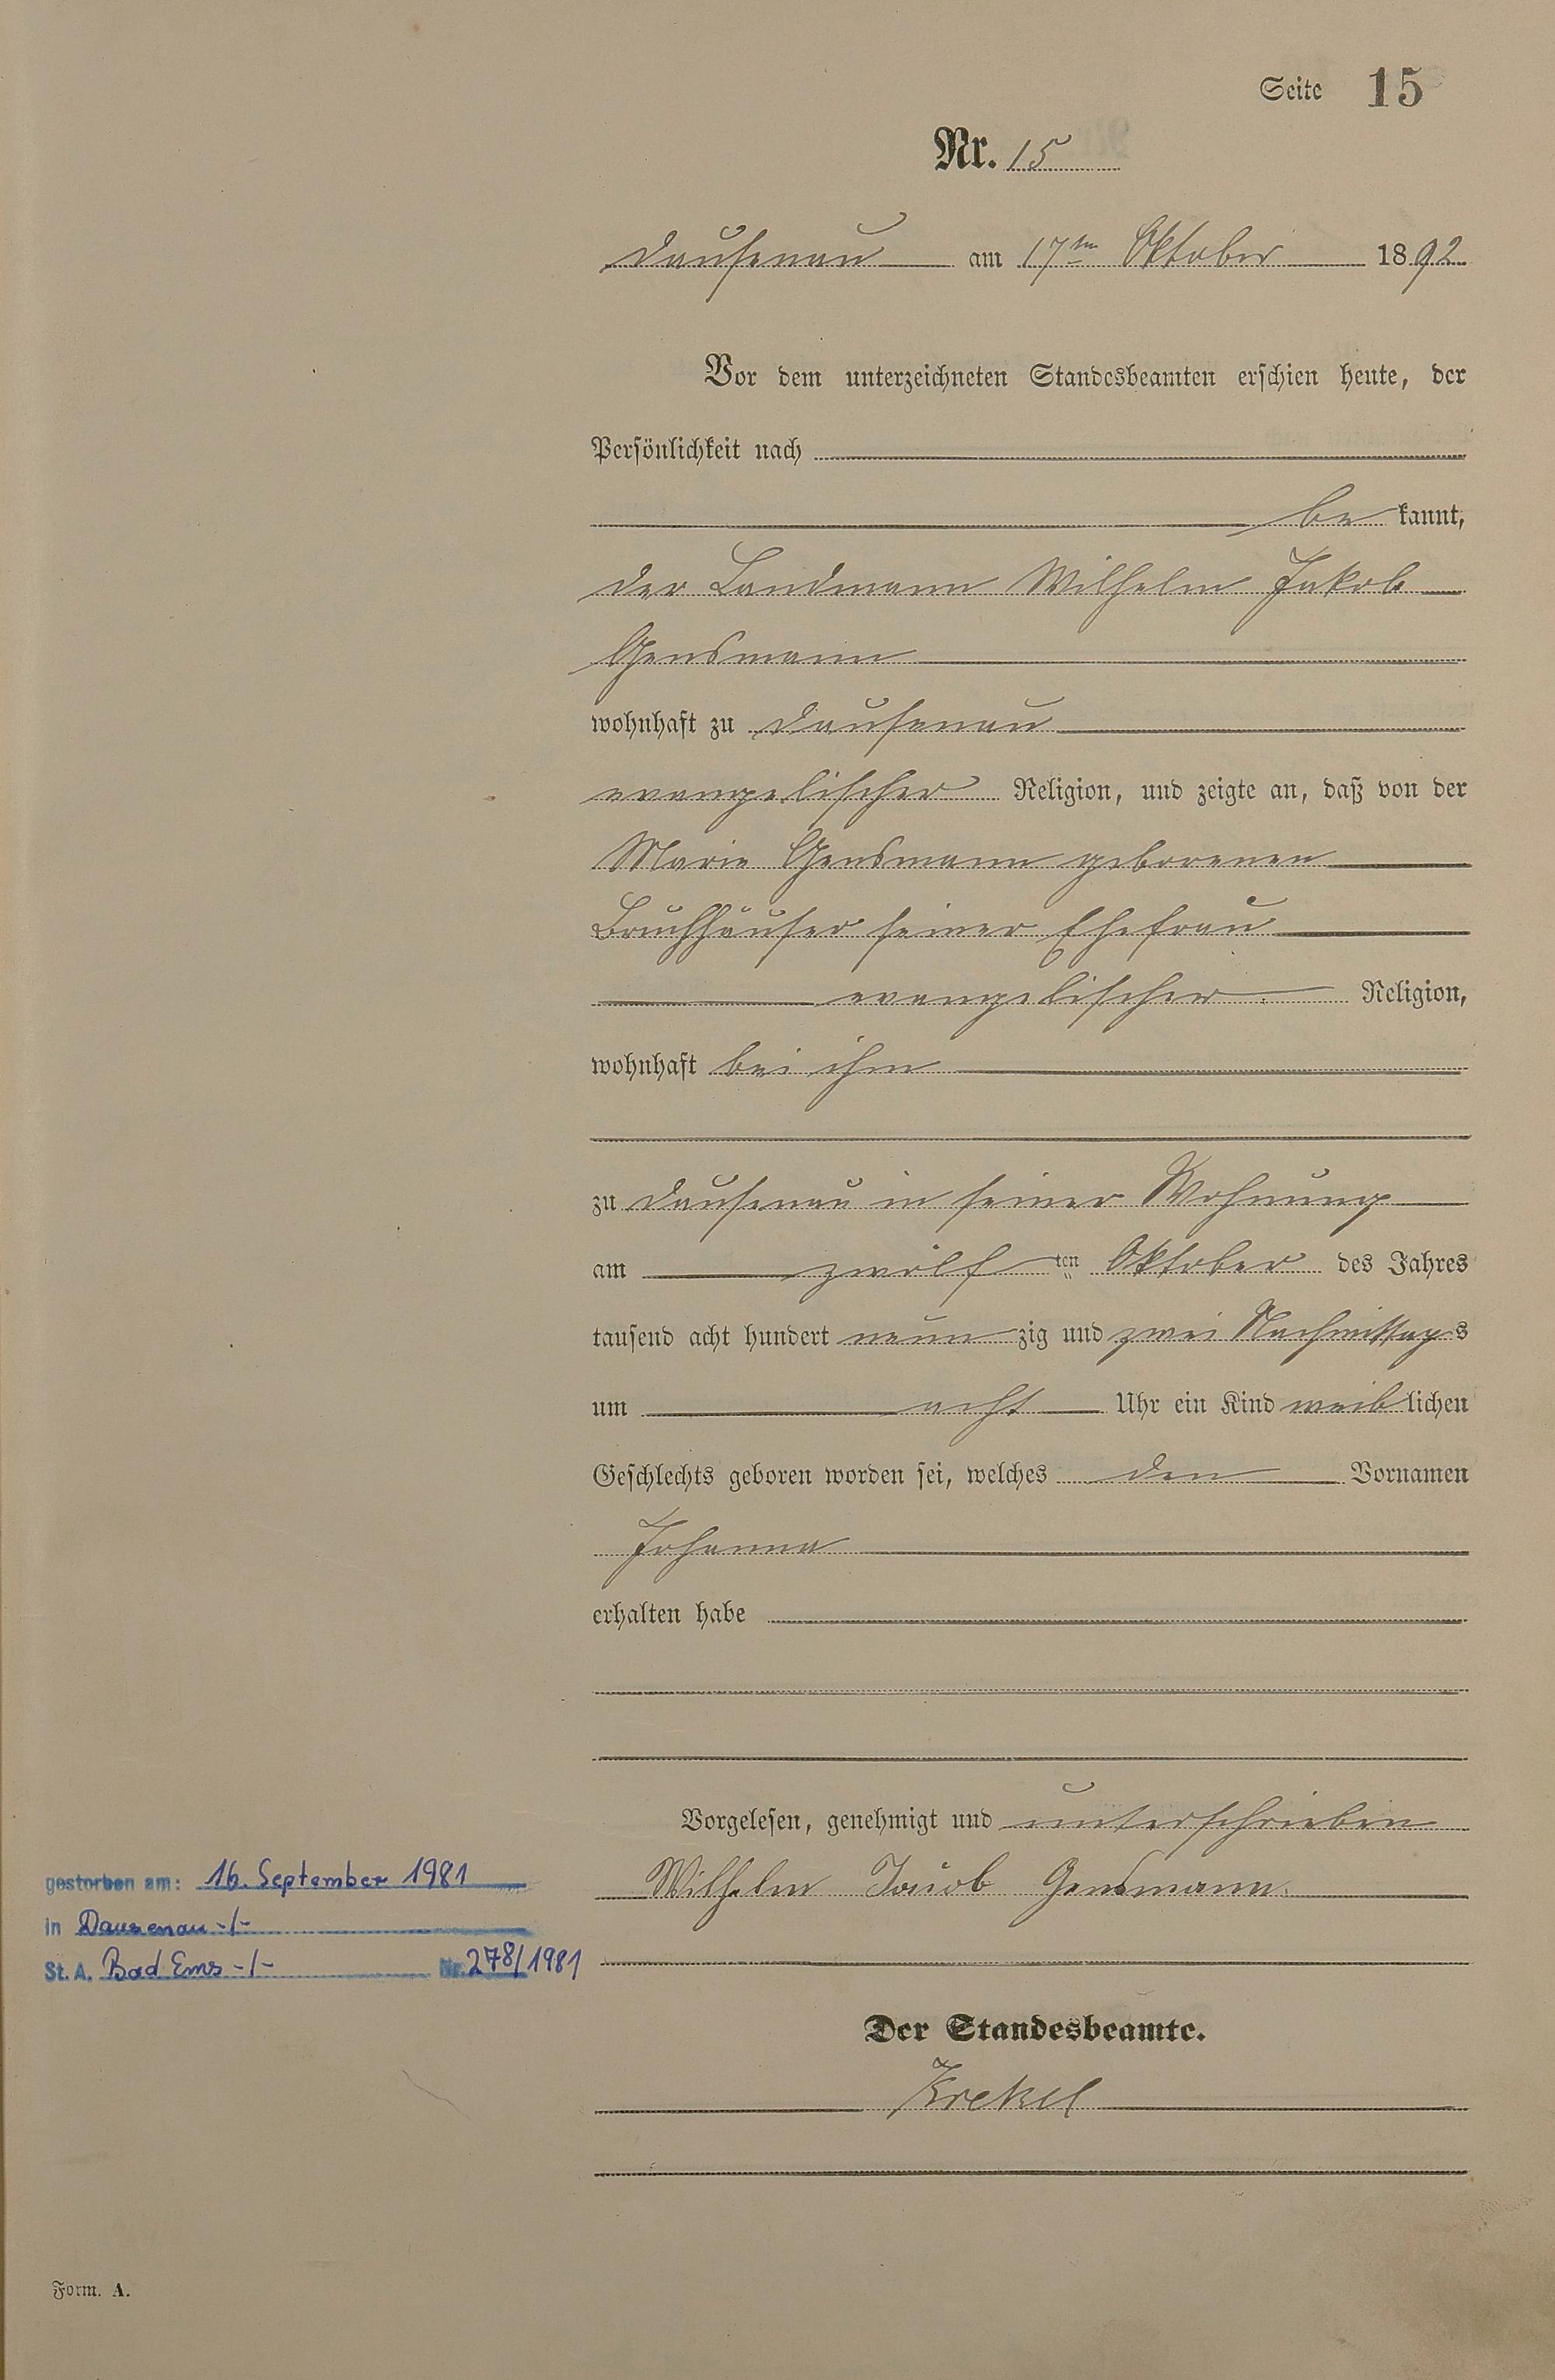 Seite 15
Nr. 15
Dausenau am 17ten Oktober 1892
Vor dem unterzeichneten Standesbeamten erschien heute, der
Persönlichkeit nach
be kannt,
der Landmann Wilhelm Jakob
Gensmann
wohnhaft zu Dausenau
evangelischer Religion, und zeigte an, daß von der
Marie Gensmann geborenen
Bruchhäuser seiner Ehefrau
evangelischer Religion,
wohnhaft bei ihm
zu Dausenau in seiner Wohnung
am zwölf ten Oktober des Jahres
tausend acht hundert neun zig und zwei Nachmittags
um acht Uhr ein Kind weiblichen
Geschlechts geboren worden sei, welches den Vornamen
Johanna
erhalten habe
Vorgelesen, genehmigt und unterschrieben
Wilhelm Gensmann.
gestorben am: 16. September 1981
in Dausenau -/-
St. A. Bad Ems -/- Nr. 278/1981
Der Standesbeamte.
Krekel
Form. A.